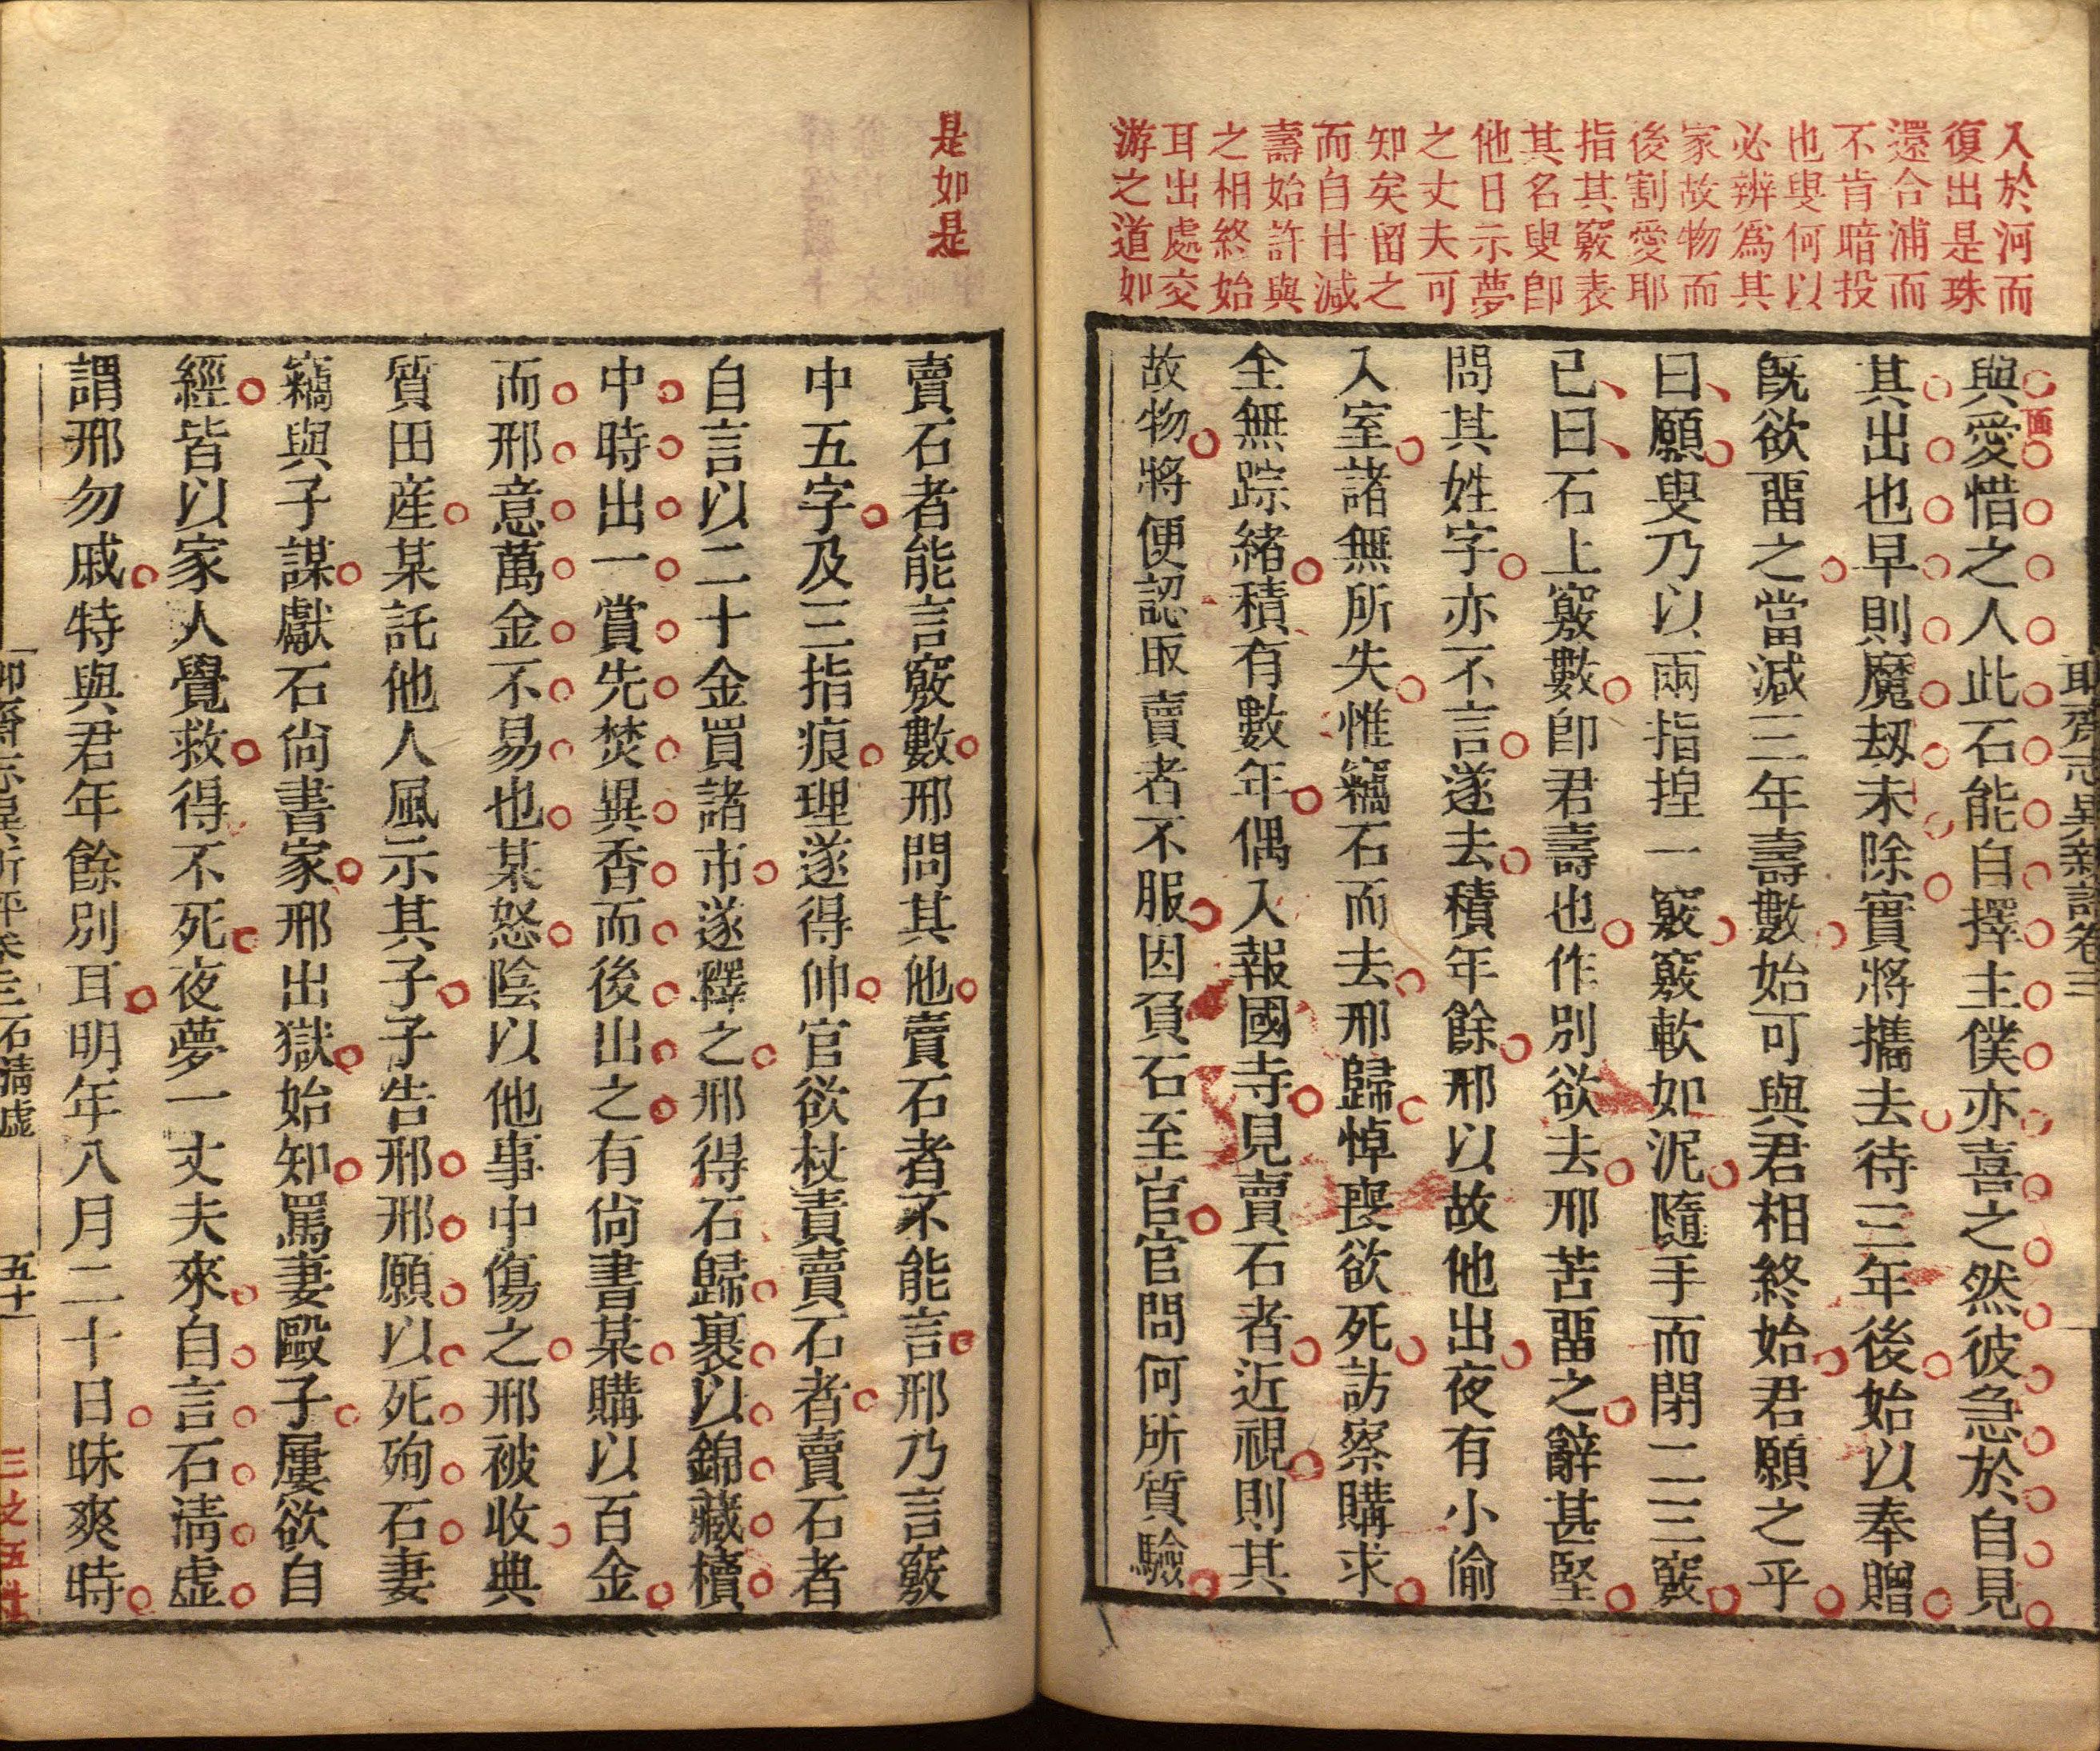 入於河而
復出是珠
還合浦而
不肯暗投
也叟何以
必辨爲其
家故物而
後割愛耶
指其竅表
其名叟卽
他日示夢
之丈夫可
知矣留之
而自甘減
壽始許與
之相終始
耳出處交
游之道如
與愛惜之人此石能自擇主僕亦喜之然彼急於自見
其出也早則魔劫未除實將攜去待三年後始以奉贈
旣欲畱之當減三年壽數始可與君相終始君願之乎
曰願叟乃以兩指揑一竅竅軟如泥隨手而閉二三竅
已曰石上竅數卽君壽也作別欲去邢苦畱之辭甚堅
問其姓字亦不言遂去積年餘邢以故他出夜有小偷
入室諸無所失惟竊石而去邢歸悼喪欲死訪察購求
全無踪緒積有數年偶入報國寺見賣石者近視則其
故物將便認取賣者不服因負石至官官問何所質驗
是如是
賣石者能言竅數邢問其他賣石者不能言邢乃言竅
中五字及三指痕理遂得伸官欲杖責賣石者賣石者
自言以二十金買諸市遂釋之邢得石歸裹以錦藏櫝
中時出一賞先焚異香而後出之有尙書某購以百金
而邢意萬金不易也某怒陰以他事中傷之邢被收典
質田産某託他人風示其子子告邢邢願以死殉石妻
竊與子謀獻石尙書家邢出獄始知罵妻毆子屢欲自
經皆以家人覺救得不死夜夢一丈夫來自言石淸虛
謂邢勿戚特與君年餘別耳明年八月二十日昧爽時
石淸虛
五十一